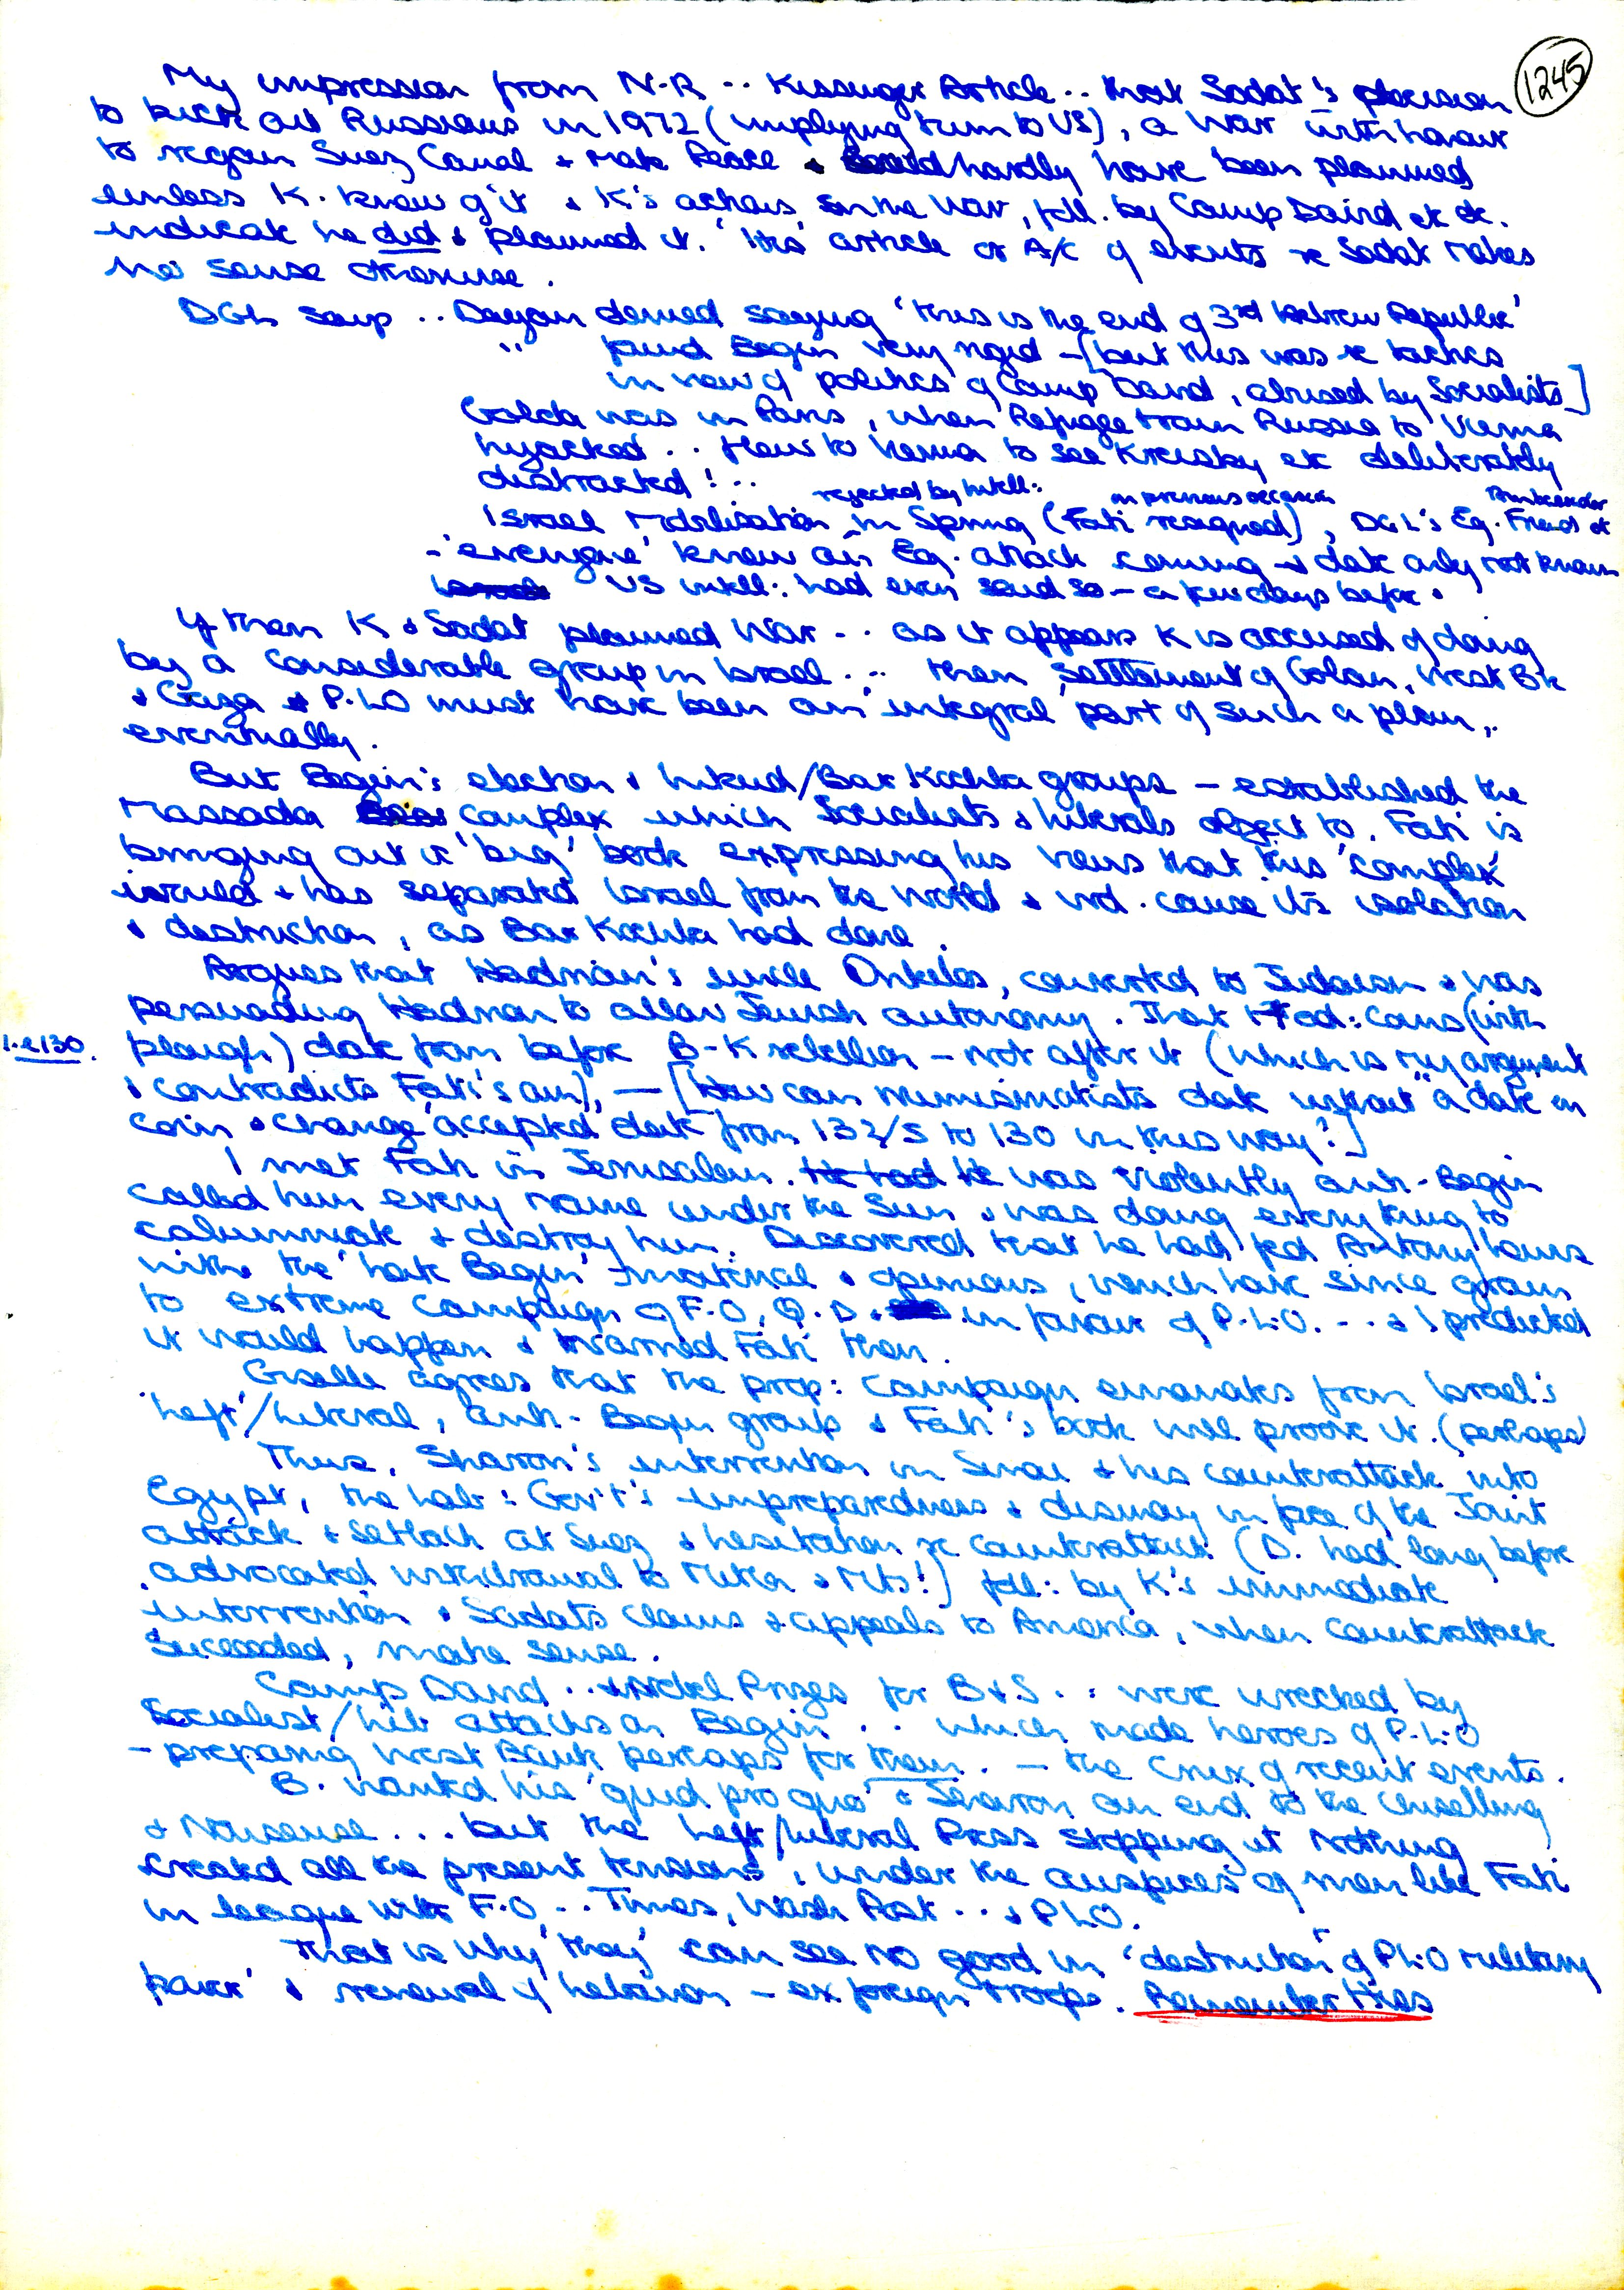 1245
My impression from N.R .. Kissinger Article .. that Sadat's decision
to kick out Russians in 1972 (implying turn to US), a War with honour
to regain Suez Canal & Make Peace & could hardly have been planned
unless K. knew of it & K's actions, in the War, foll. by Camp David etc etc.
indicate he did & planned it. 'His' article or A/C of events re Sadat makes
no sense otherwise.
DGL says .. Dayan denied saying 'this is the end of 3rd Hebrew Republic'
" found Begin very rigid - [but this was re tactics
in view of politics of Camp David, abused by Socialists]
Golda was in Paris, when Refugee train Russia to Vienna
hijacked .. flew to Vienna to see Kreisky etc deliberately
distracted! ..
rejected by Intell: on previous occasion
Israel Mobilisation in Spring (Fati resigned), DGL's Eg. Friend et
- 'everyone' knew an Eg. attack coming & date only not known
US intell: had even said so - a few days before.
If then K & Sadat planned War .. as it appears K is accused of doing
by a considerable group in Israel .. then Settlement of Golan, West Bk
& Gaza & P.LO must have been an 'integral' part of such a plan,
eventually.
But Begin's election & Likud/Bar Kochba groups - established the
Massada complex which Socialists & Liberals object to. Fati is
bringing out a 'big' book expressing his views that this 'complex'
would & has separated Israel from the World & wd. cause its isolation
& destruction, as Bar Kochba had done.
Argues that Hadrian's uncle Onkelos, converted to Judaism & was
persuading Hadrian to allow Jewish autonomy. That Fod: Coins (with
i.e 130. plough) date from before B-K rebellion - not after it (which is my argument
& contradicts Fati's aim), - [How can numismatists date without a date on
coin & change 'accepted date' from 132/5 to 130 in this way?]
I met Fati in Jerusalem. He had He was violently anti-Begin
called him every name under the Sun & was doing everything to
calumniate & destroy him. Discovered that he had fed Antony Lewis
with the 'hate Begin' material & opinions, which have since grown
to extreme campaign of F.O, in favour of P.L.O. ... & I predicted
it would happen & warned Fati then.
Giselle agrees that the prop: campaign emanates from Israel's
'Left'/Liberal, anti-Begin group & Fati's book will prove it. (perhaps)
Thus, Sharon's intervention in Sinai & his counterattack into
Egypt, the Lab: Gov't's unpreparedness & dismay in face of the Joint
attack & setback at Suez & hesitation re counterattack (D. had long before
advocated withdrawal to Mitla & Mts!) foll: by K's immediate
intervention & Sadat's claims & appeals to America, when counterattack
succeeded, make sense.
Camp David .. & Nobel Prizes for B & S .. were wrecked by
Socialist/Lib attacks on Begin .. which made heroes of P.L.O
- preparing West Bank perhaps for them. - the Crux of recent events.
B. wanted his 'quid pro quo' & Sharon an end to the shelling
& Nuisance ... but the Left/Liberal Press stopping at Nothing
created all the present tensions, under the auspices of men like Fati
in league with F.O, .. Times, Wash Post .. & PLO.
That is why 'they' can see no good in 'destruction of PLO military
power' & renewal of Lebanon - ex foreign troops. Remember this